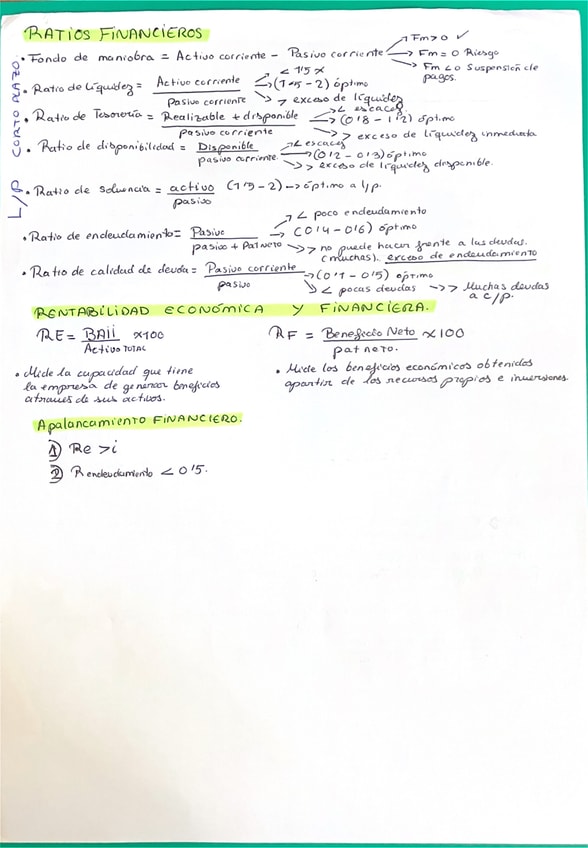 RATIOS FINANCIEROS
CORTO PLAZO.
• Fondo de maniobra = Activo corriente - Pasivo corriente → Fm>0 ✓
→ Fm = 0 Riesgo
→ Fm <0 Suspensión de pagos.
• Ratio de líquidez = Activo corriente / Pasivo corriente → < 1'5 x
→ (1'5 - 2) óptimo
→ > exceso de líquidez
• Ratio de Tesorería = Realizable + disponible / pasivo corriente → < escacez
→ (0'8 - 1'2) óptimo
→ > exceso de líquidez inmediata
• Ratio de disponibilidad = Disponible / pasivo corriente. → < escacez
→ (0'2 - 0'3) óptimo
→ > exceso de líquidez disponible.
L/P
• Ratio de solvencia = activo / pasivo (1'5 - 2) → óptimo a l/p.
• Ratio de endeudamiento = Pasivo / pasivo + Pat Neto → < poco endeudamiento
→ (0'4 - 0'6) óptimo
→ > no puede hacer frente a las deudas. (muchas). exceso de endeudamiento
• Ratio de calidad de deuda = Pasivo corriente / pasivo → (0'1 - 0'5) óptimo
→ < pocas deudas → > Muchas deudas a c/p.
RENTABILIDAD ECONÓMICA Y FINANCIERA.
RE = BAII / Activo TOTAL x100
• Mide la capacidad que tiene
la empresa de generar beneficios
atraves de sus activos.
RF = Beneficio Neto / pat neto. x100
• Mide los beneficios económicos obtenidos
apartir de los recursos propios e inversiones.
Apalancamiento FINANCIERO.
1) Re > i
2) R endeudamiento < 0'5.